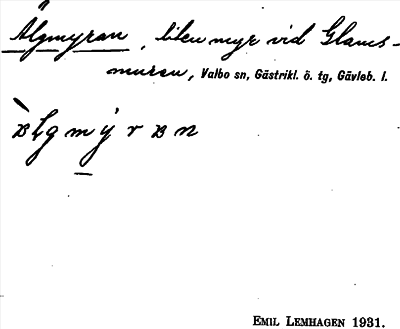 Älgmyran, liten myr vid Glams-
muren, Valbo sn, Gästrikl. ö. tg, Gävleb. l.
EMIL LEMHAGEN 1931.